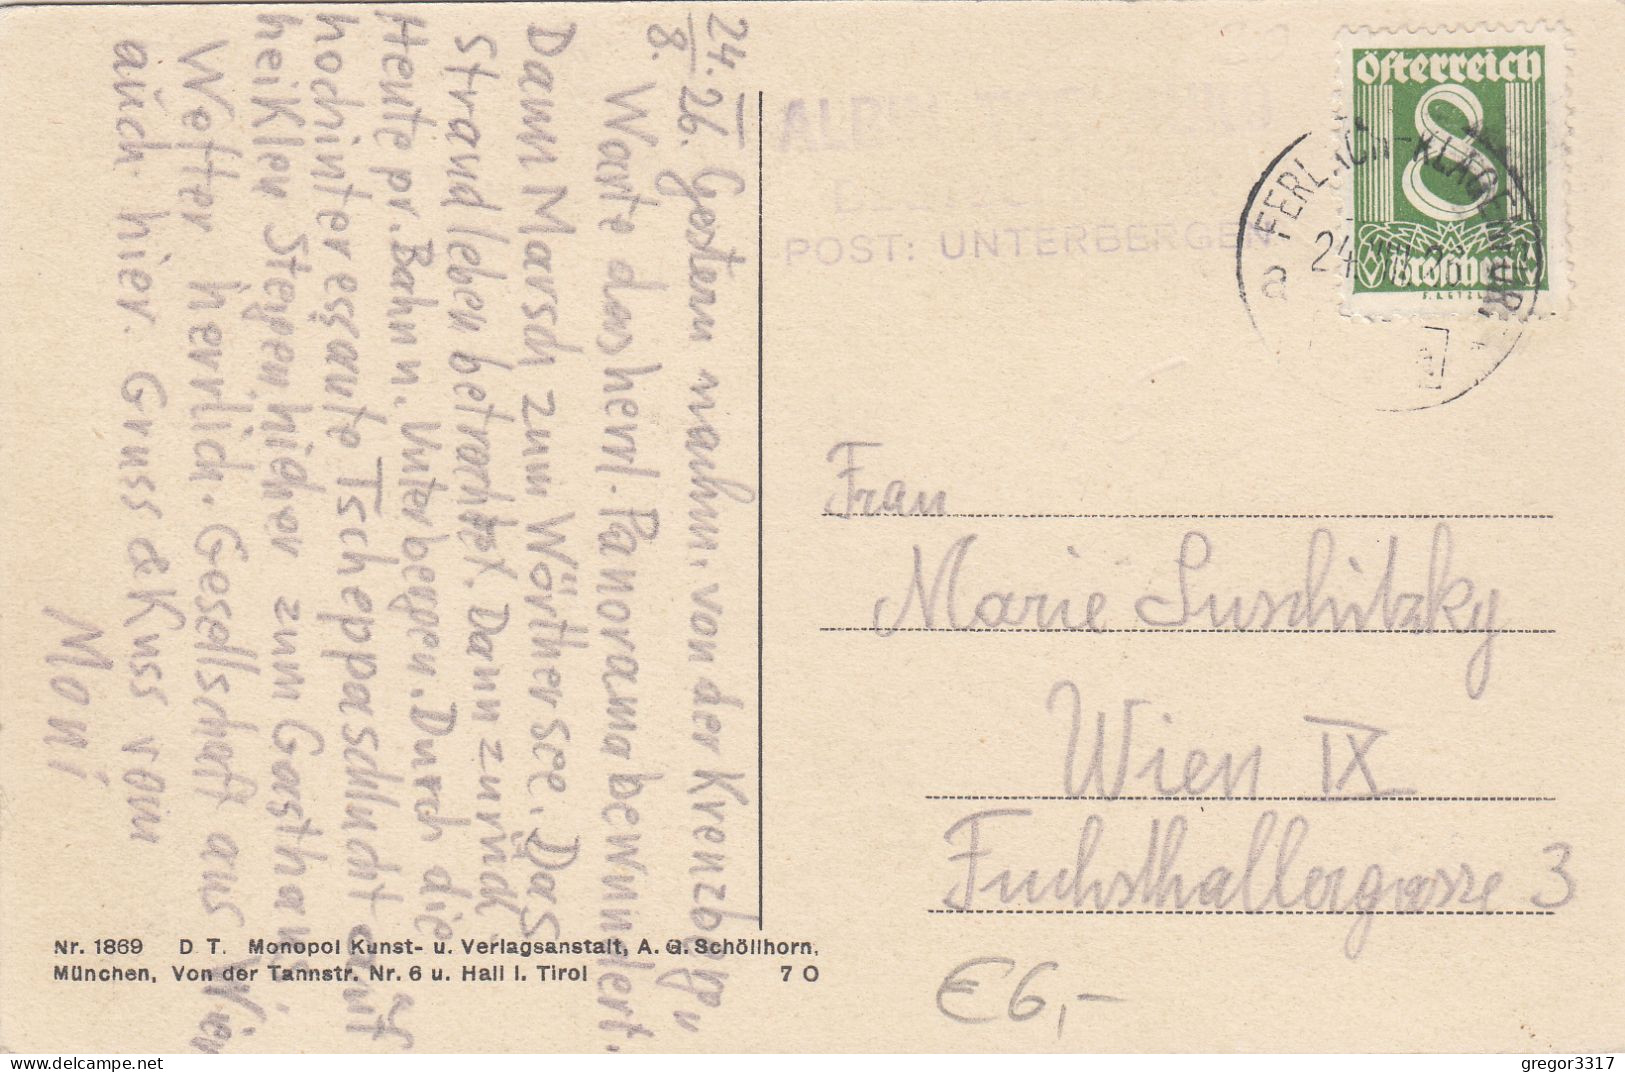 24. 26. Gestern nachm. von der Kreuzbergl
8.
Warte das herrl. Panorama bewundert.
Dann Marsch zum Wörthersee. Das
Strandleben betrachtet. Dann zurück.
Heute pr. Bahn n. Unterbergen. Durch die
hochinteressante Tscheppaschlucht auf
heiklen Stegen, hieher zum Gasthaus.
Wetter herrlich. Gesellschaft aus Wien
auch hier. Gruss & Kuss vom
Moni
ALPEN
POST: UNTERBERGEN
Österreich
8
Groschen
FERLACH-KLAGENFURT
24.VIII.26
a
Frau
Marie Suschitzky
Wien IX
Fuchsthallergasse 3
Nr. 1869 D. T. Monopol Kunst- u. Verlagsanstalt, A. G. Schöllhorn,
München, Von der Tannstr. Nr. 6 u. Hall i. Tirol 7 O
€ 6,-
delcampe.net
gregor3317